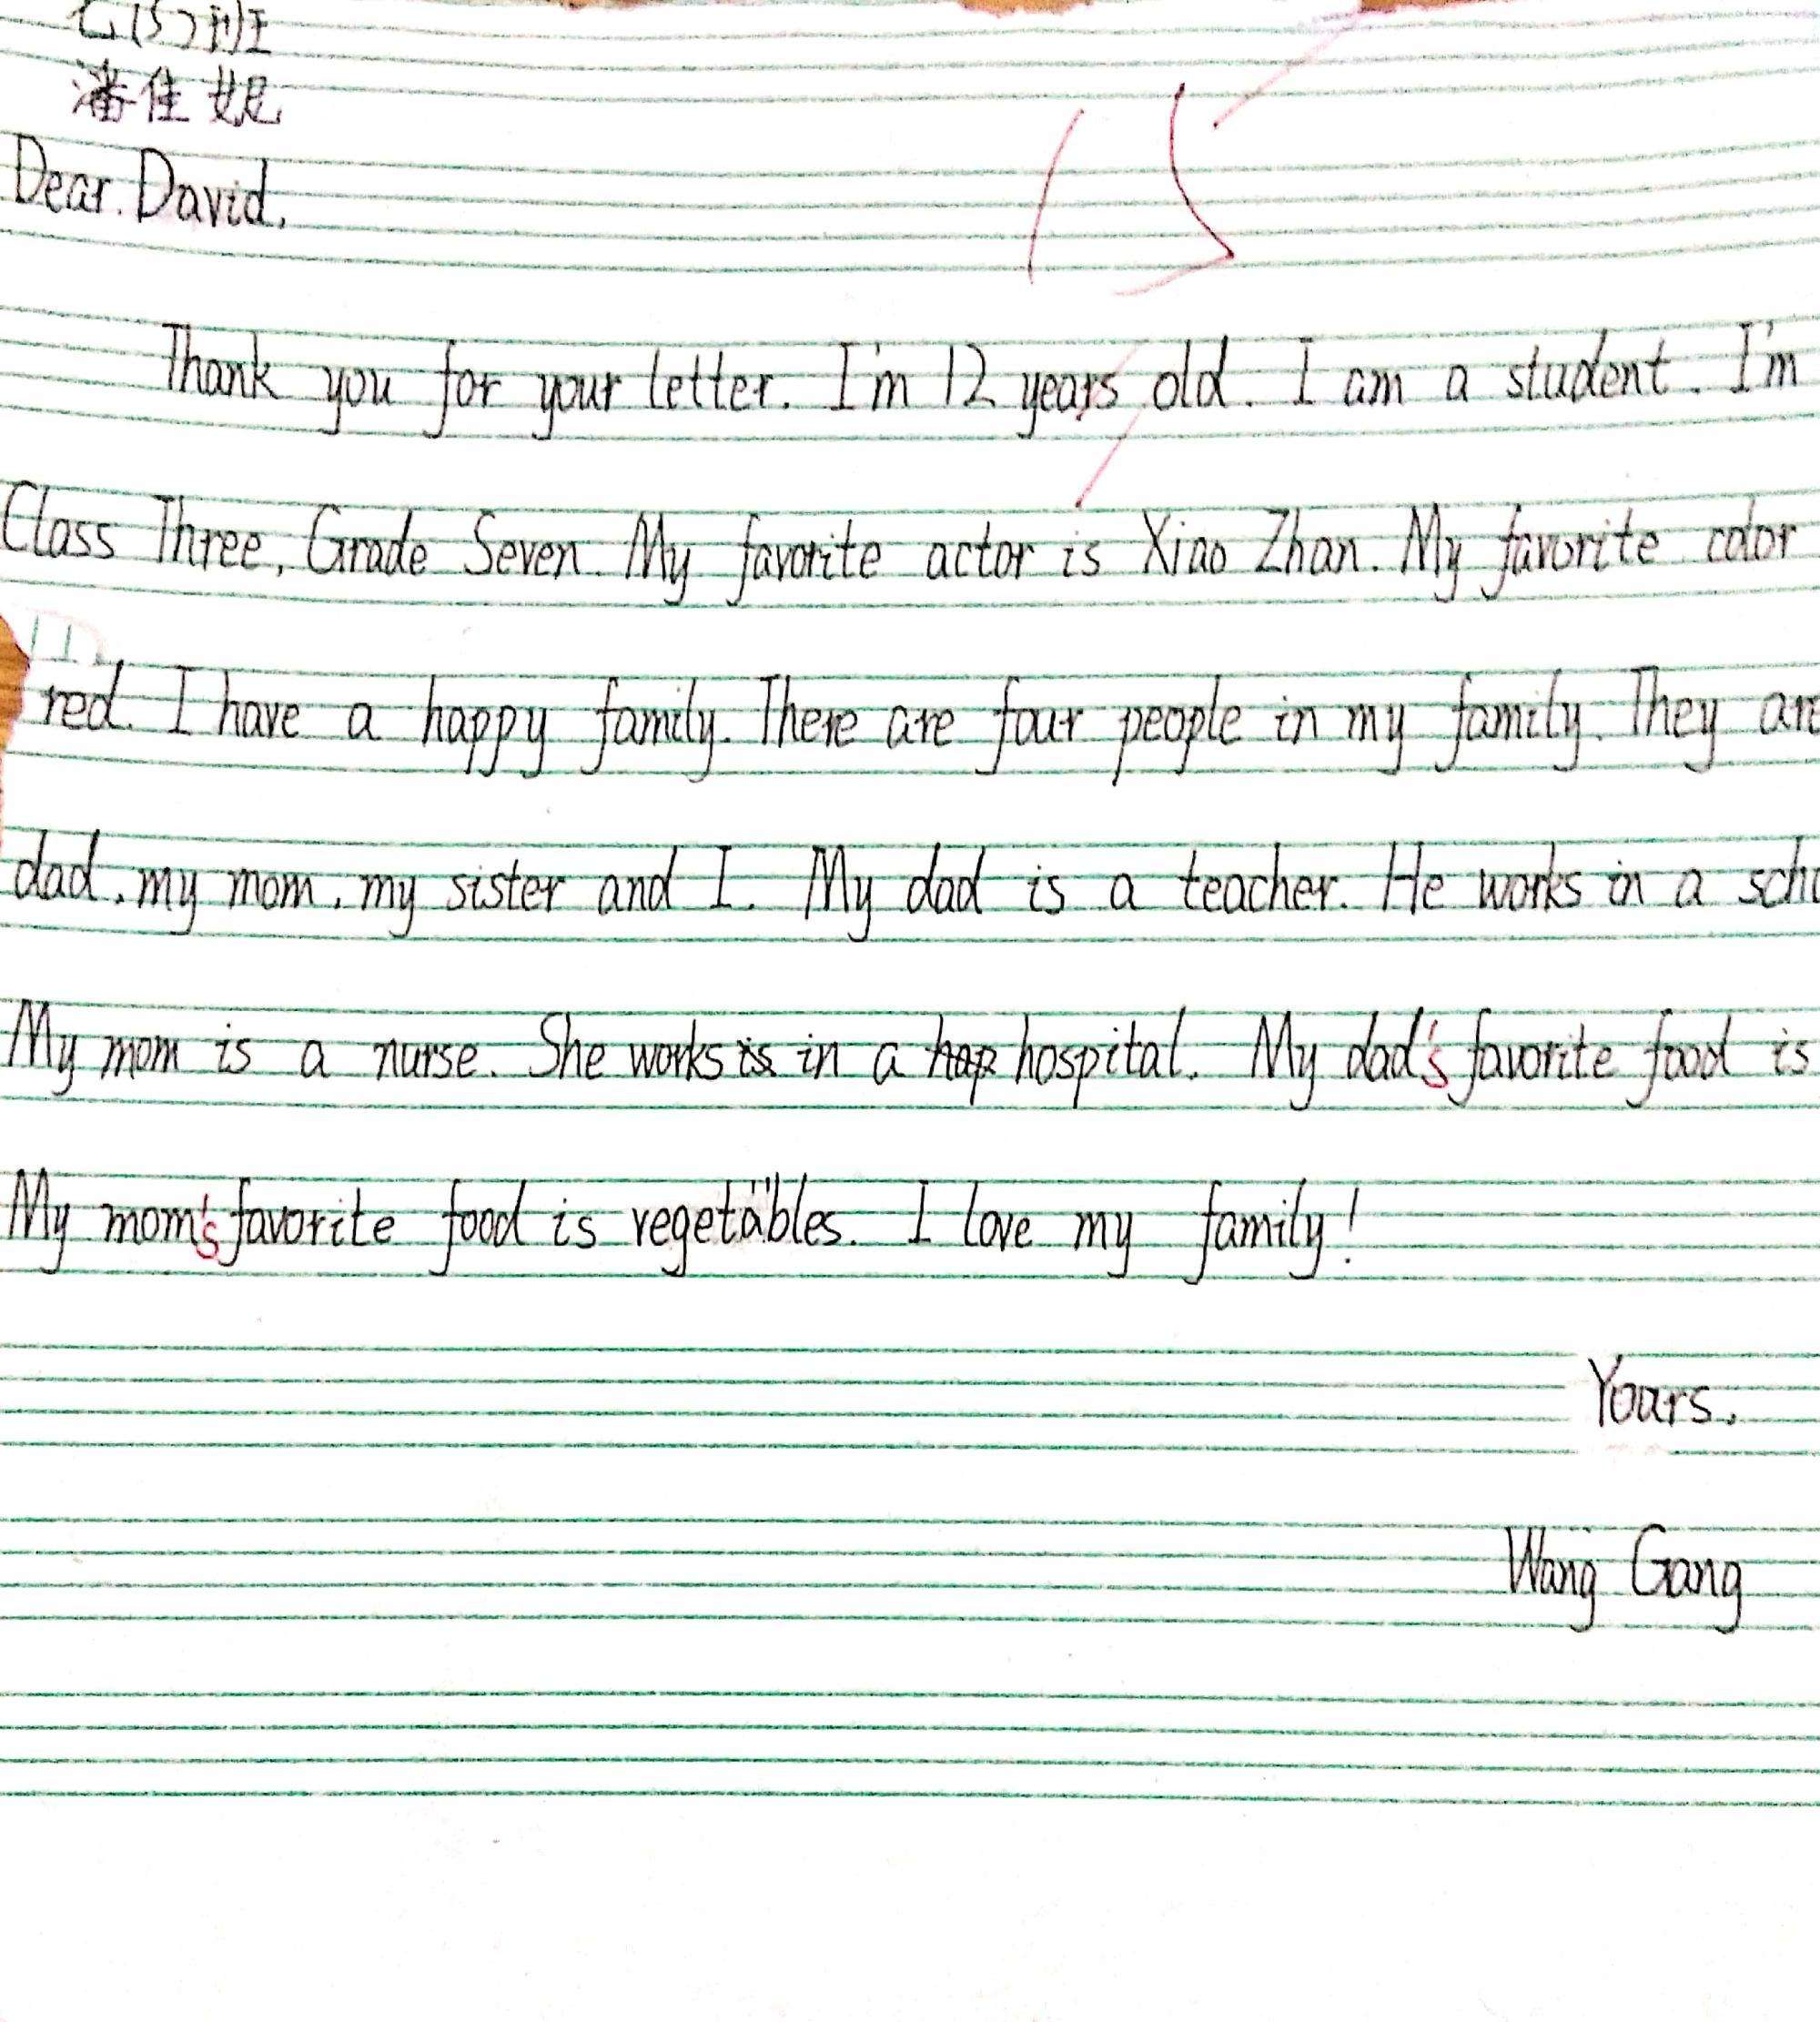 班
潘佳妮
Dear. David.
15
Thank you for your letter. I'm 12 years old. I am a student. I'm
Class Three, Grade Seven. My favorite actor is Xiao Zhan. My favorite color
red. I have a happy family. There are four people in my family. They are
dad, my mom, my sister and I. My dad is a teacher. He works in a
My mom is a nurse. She works in a hospital. My dad's favorite food is
My mom's favorite food is vegetables. I love my family!
Yours.
Wang Gang